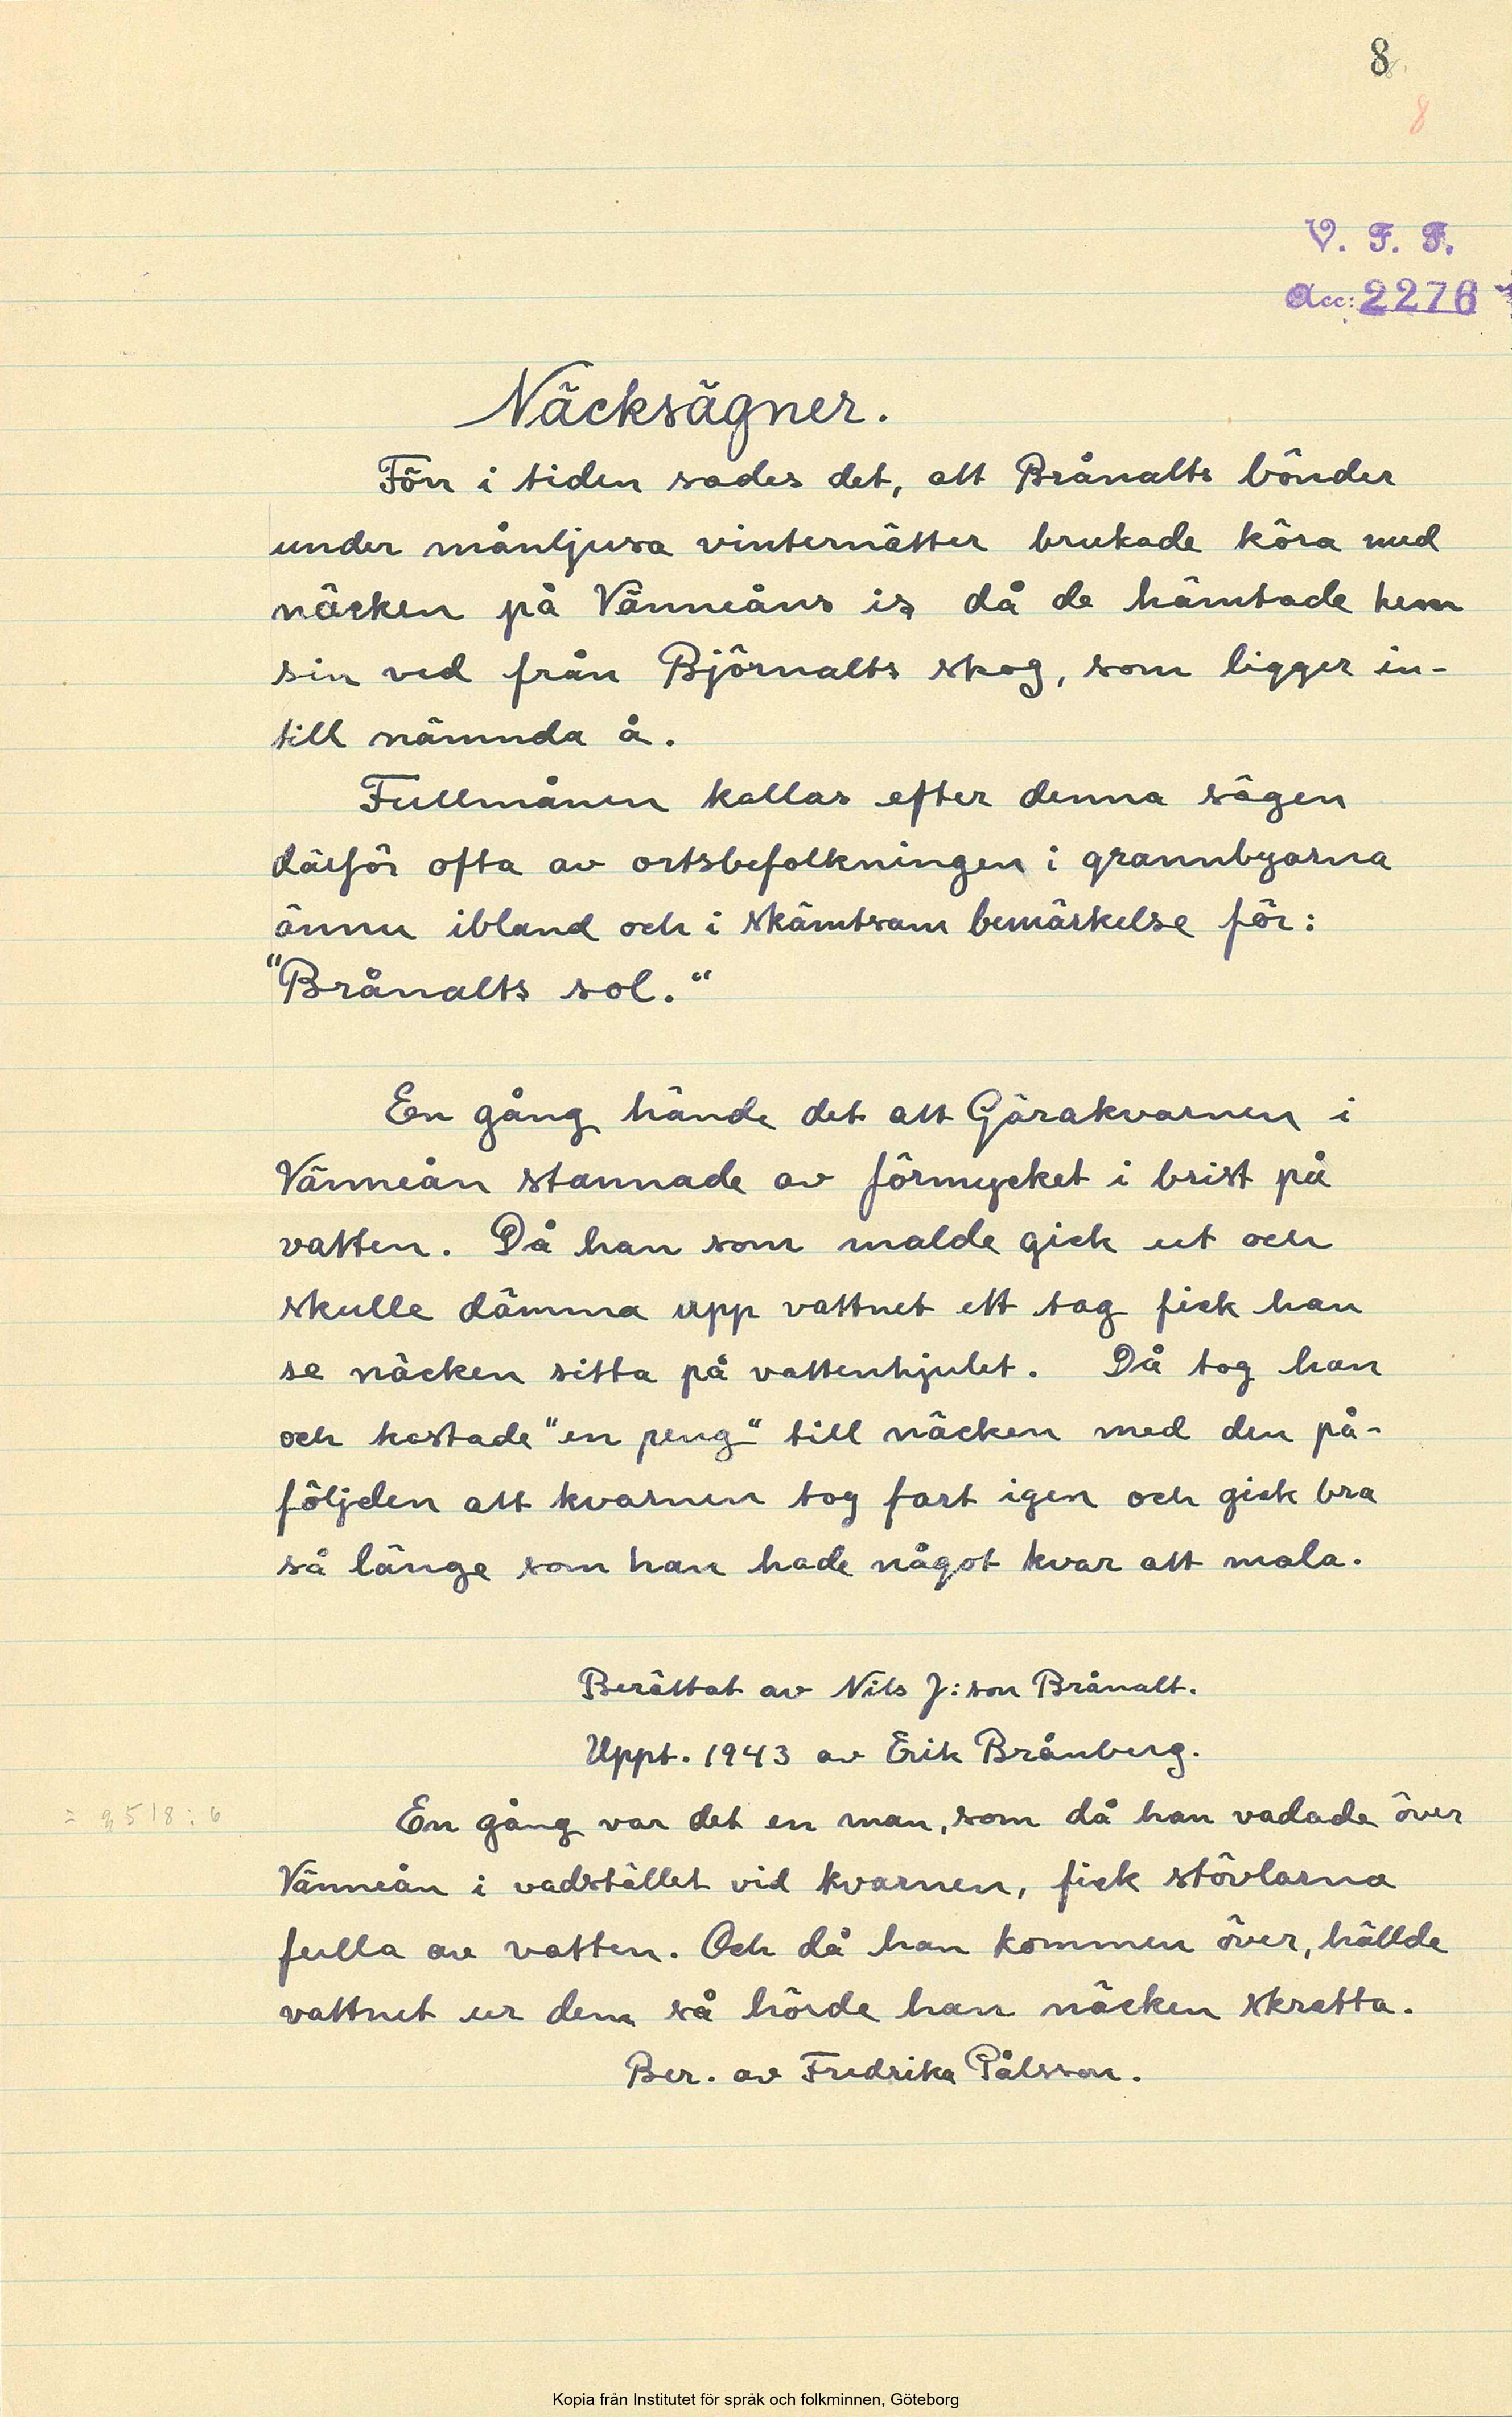 8
8
V. F. F.
Acc: 2276
Näcksägner.
Förr i tiden sades det, att Brånalts bönder
under månljusa vinternätter brukade köra med
näcken på Vänneåns is då de hämtade hem
sin ved från Björnalts skog, som ligger in-
till nämnda å.
Fullmånen kallas efter denna sägen
därför ofta av ortsbefolkningen i grannbyarna
ännu ibland och i skämtsam bemärkelse för:
"Brånalts sol."
En gång hände det att Gärakvarnen i
Vänneån stannade av förmycket i brist på
vatten. Då han som malde gick ut och
skulle dämma upp vattnet ett tag fick han
se näcken sitta på vattenhjulet. Då tog han
och kastade "en peng" till näcken med den på-
följden att kvarnen tog fart igen och gick bra
så länge som han hade något kvar att mala.
Berättat av Nils J:son Brånalt.
Uppt. 1943 av Erik Brånberg.
= 9518:6
En gång var det en man, som då han vadade över
Vänneån i vadstället vid kvarnen, fick stövlarna
fulla av vatten. Och då han kommen över, hällde
vattnet ur dem så hörde han näcken skratta.
Ber. av Fredrika Pålsson.
Kopia från Institutet för språk och folkminnen, Göteborg